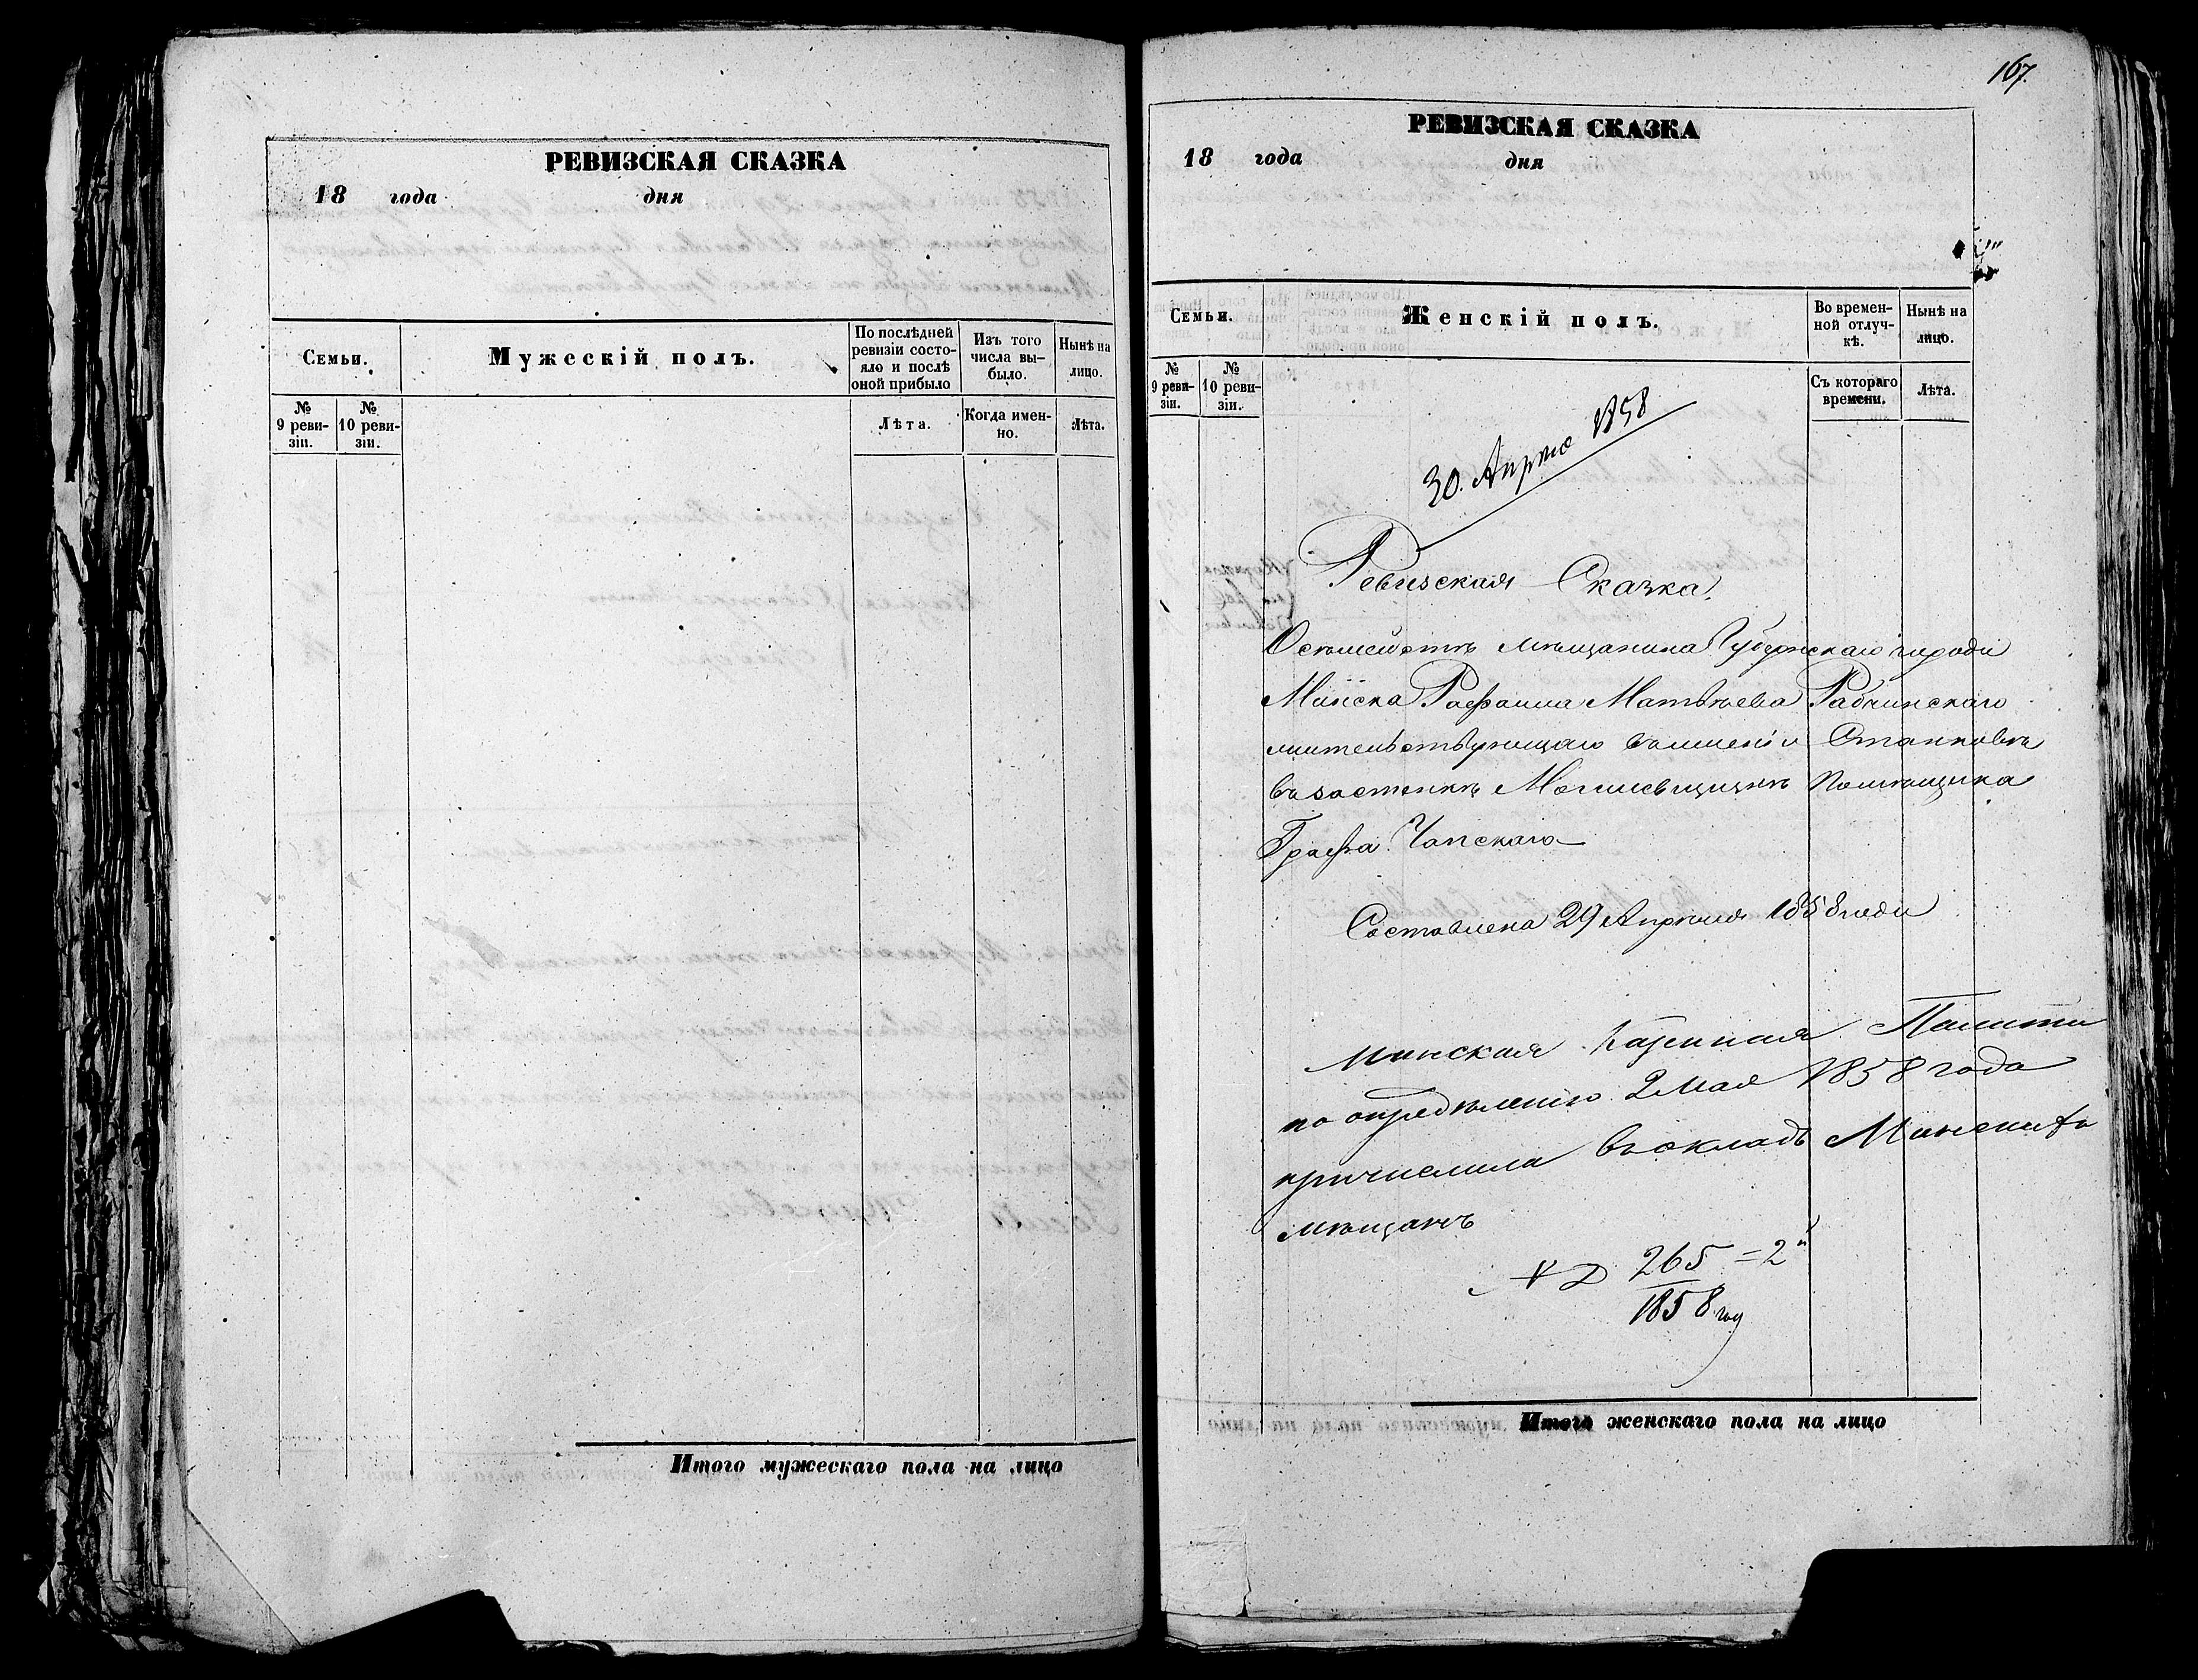 РЕВИЗСКАЯ СКАЗКА
18 года дня
Семьи.
Мужескій полъ.
По послѣдней ревизіи состояло и послѣ оной прибыло
Изъ того числа выбыло.
Нынѣ на лицо.
№ 9 ревизіи.
№ 10 ревизіи.
Лѣта.
Когда именно.
Лѣта.
Итого мужескаго пола на лицо
167.
РЕВИЗСКАЯ СКАЗКА
18 года дня
Семьи.
Женскій полъ.
Во временной отлучкѣ.
Нынѣ на лицо.
№ 9 ревизіи.
№ 10 ревизіи.
Съ котораго времени.
Лѣта.
30. Апрѣля 1858
Ревизская Сказка.
О семействѣ мѣщанина Губернскаго города
Минска Рафаила Матвѣева Рабчинскаго
жительствующаго въ имѣніи Станковѣ
въ застенкѣ Помѣщика
Графа Чапскаго
Составлена 29 Апрѣля 1858 года
Минская Казенная Палата
по опредѣленію 2 Мая 1858 года
причислила въ окладъ Минскихъ
мѣщанъ
265 = 2
1858 год
Итого женскаго пола на лицо